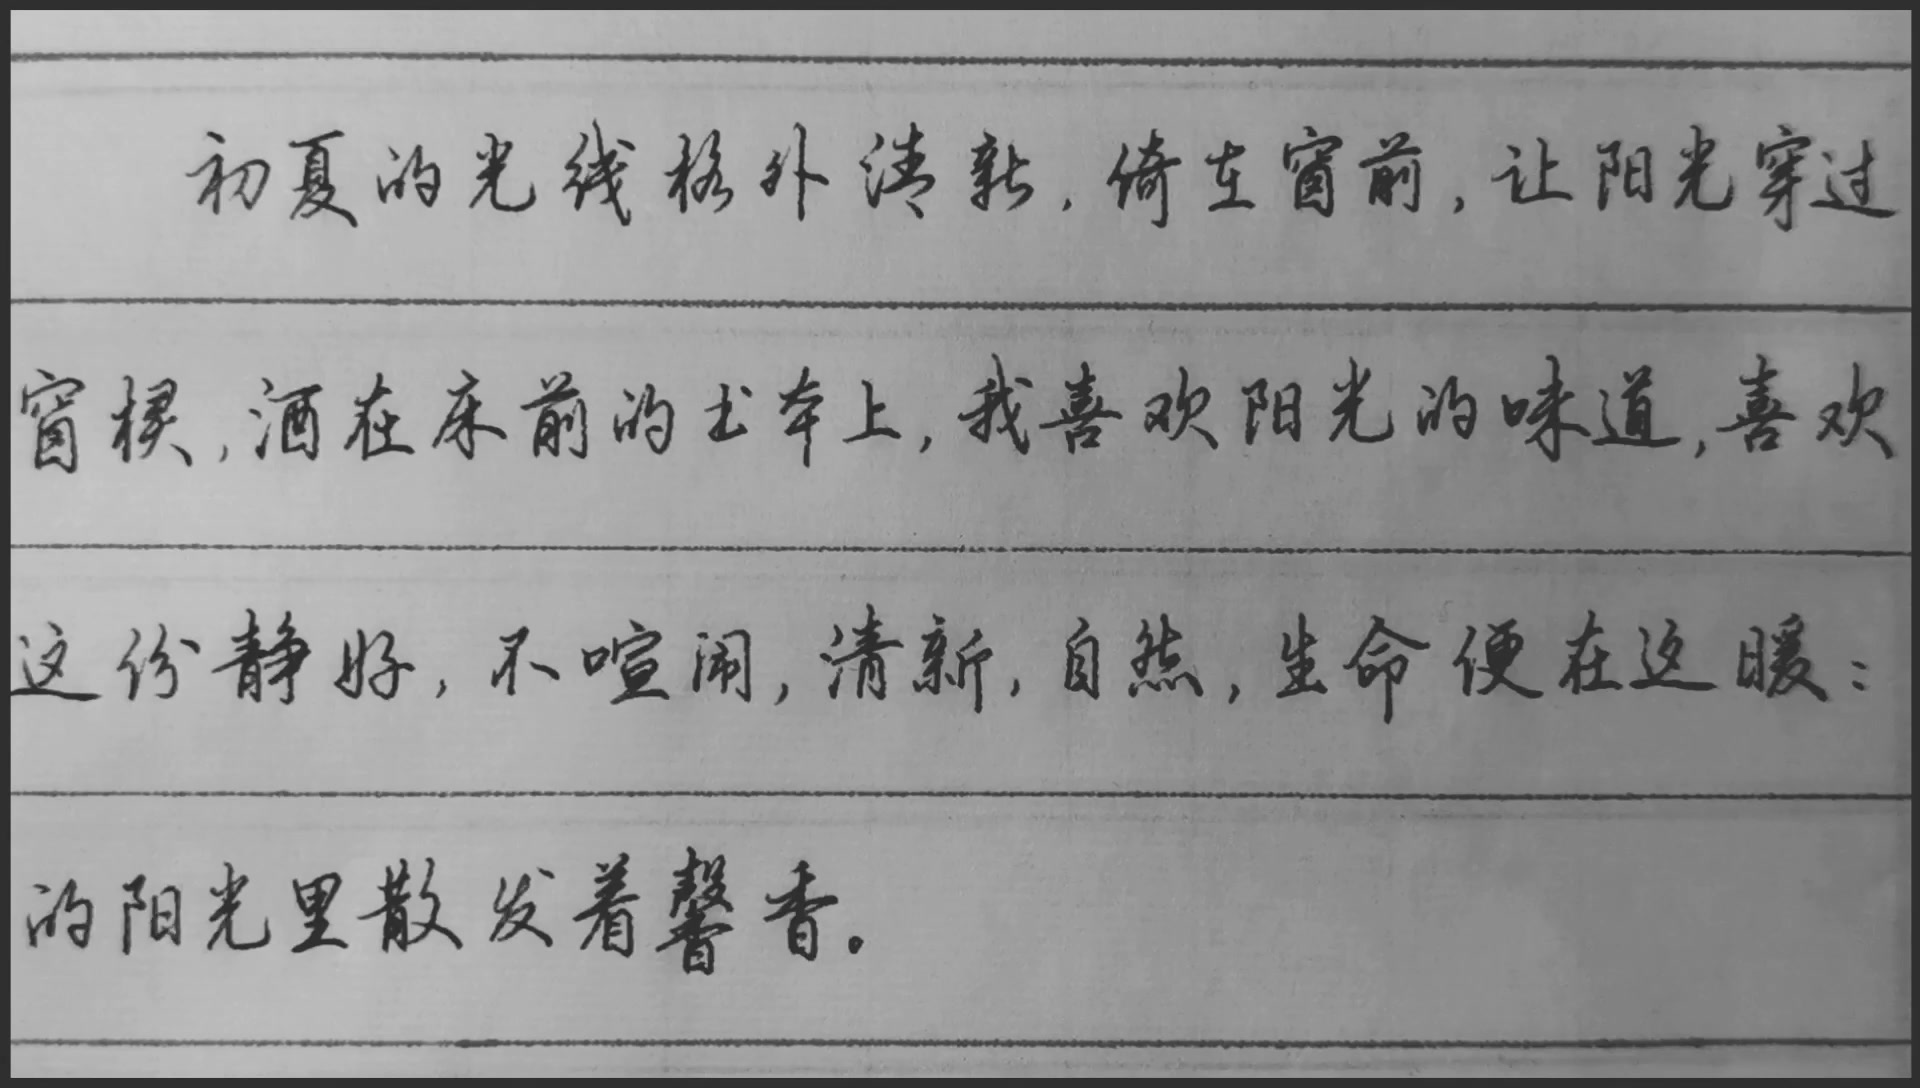 初夏的光线格外清新，倚在窗前，让阳光穿过
窗棂，洒在床前的书本上，我喜欢阳光的味道，喜欢
这份静好，不喧闹，清新，自然，生命便在这暖：
的阳光里散发着馨香。